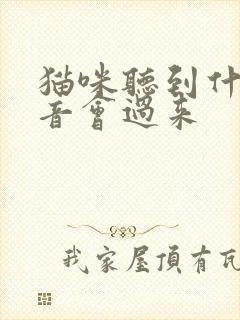 猫咪聽到什
音會過来
我家屋頂有瓦